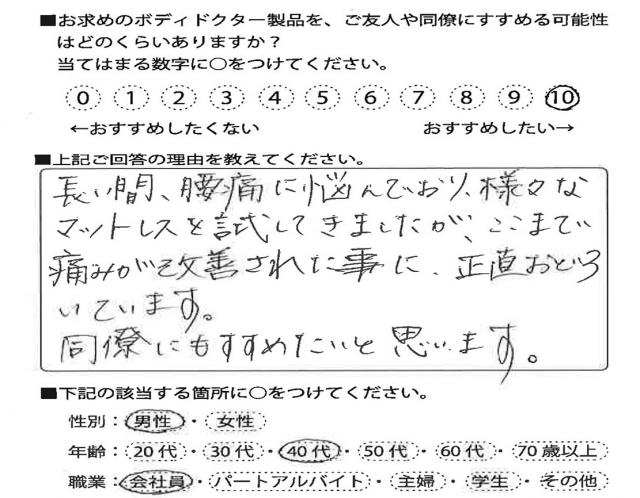 ■お求めのボディドクター製品を、ご友人や同僚にすすめる可能性
はどのくらいありますか？
当てはまる数字に○をつけてください。
0 1 2 3 4 5 6 7 8 9 10
←おすすめしたくない おすすめしたい→
■上記ご回答の理由を教えてください。
長い間、腰痛に悩んでおり、様々な
マットレスを試してきましたが、ここまで
痛みが改善された事に、正直おどろ
いています。
同僚にもすすめたいと思います。
■下記の該当する箇所に○をつけてください。
性別：男性・女性
年齢：20代・30代・40代・50代・60代・70歳以上
職業：会社員・パートアルバイト・主婦・学生・その他